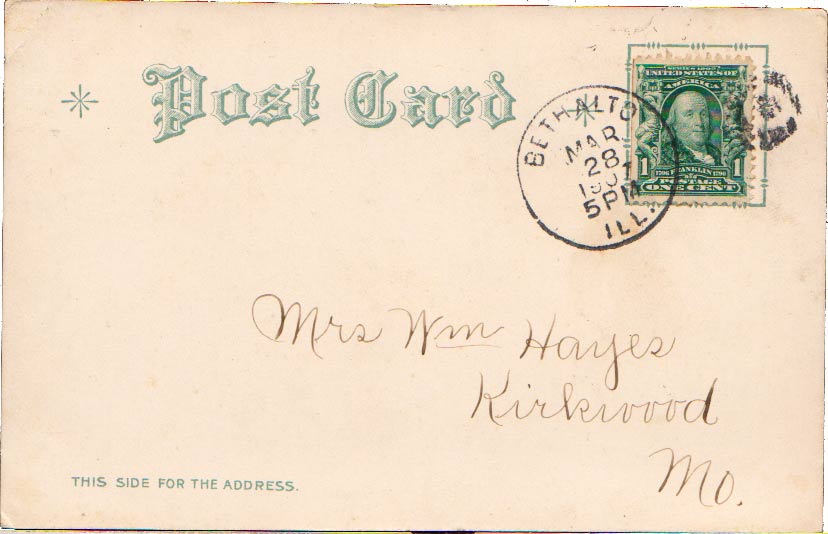 Post Card
SERIES 1902
UNITED STATES OF
AMERICA
1 1706 FRANKLIN 1790 1
POSTAGE
ONE CENT
BETHALTO
MAR
28
1907
5PM
ILL.
Mrs Wm Hayes
Kirkwood
Mo.
THIS SIDE FOR THE ADDRESS.